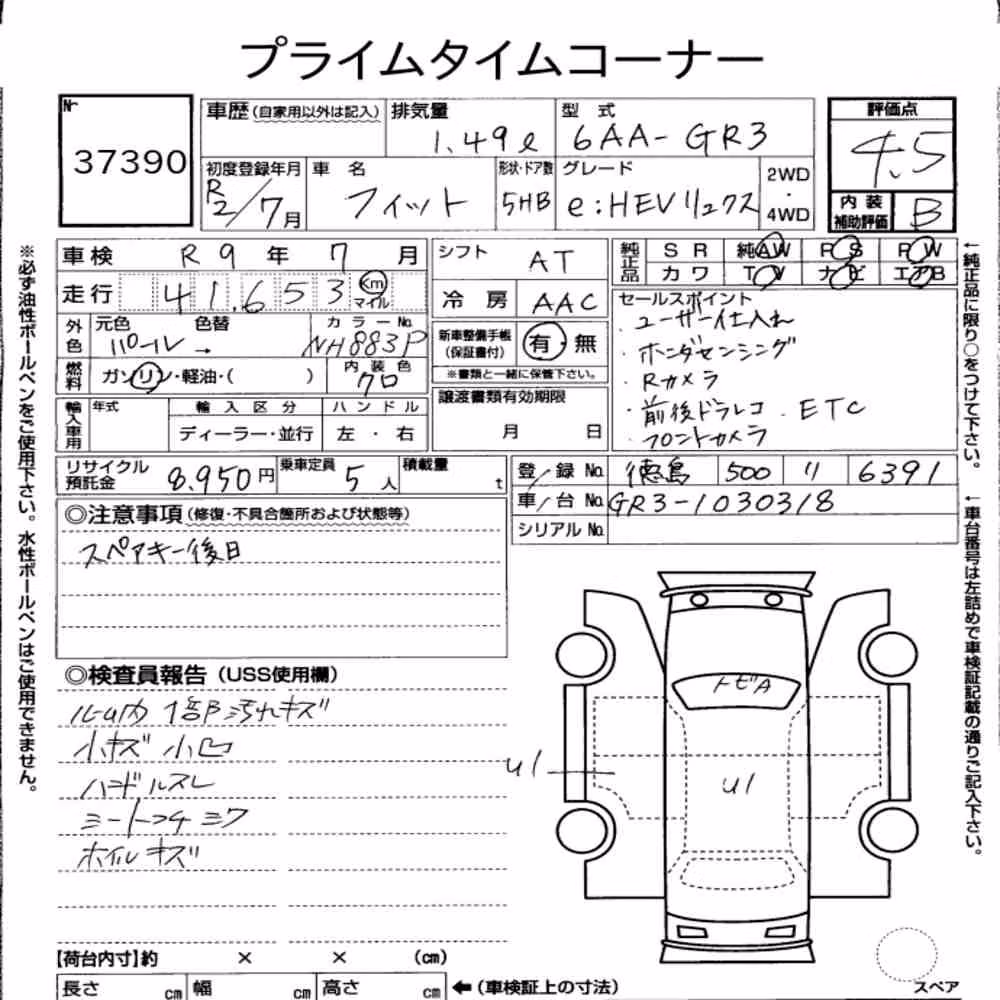 プライムタイムコーナー
№ 37390
車歴(自家用以外は記入) 排気量 1.49ℓ 型式 6AA-GR3
評価点 4.5
初度登録年月 R2/7月 車名 フィット 形状・ドア数 5HB グレード e:HEVリュクス 2WD・4WD
内装補助評価 B
車検 R9年7月 シフト AT 純正品 SR 純AW PS PW
カワ TV ナビ エアB
走行 41,653 Km マイル 冷房 AAC
外色 元色 パール → 色替 カラーNo. NH883P
新車整備手帳(保証書付) 有・無
※書類と一緒に保管下さい。
燃料 ガソリン・軽油・( ) 内装色 クロ
セールスポイント
・ユーザー仕入れ
・ホンダセンシング
・Rカメラ
・前後ドラレコ . ETC
・フロントカメラ
輸入車用 年式 輸入区分 ハンドル
ディーラー・並行 左・右
譲渡書類有効期限
月 日
リサイクル預託金 8.950円 乗車定員 5人 積載量 t
登/録No. 徳島 500 リ 6391
車/台No. GR3-1030318
シリアルNo.
◎注意事項(修復・不具合箇所および状態等)
スペアキー後日
◎検査員報告(USS使用欄)
ルーム内 1部汚れキズ
小キズ 小凹
ハンドルスレ
シートコゲ シワ
ホイルキズ
トビA
U1
U1
【荷台内寸】約 × × (cm)
長さ cm 幅 cm 高さ cm ←(車検証上の寸法)
スペア
※必ず油性ボールペンをご使用下さい。水性ボールペンはご使用できません。
←純正品に限り○をつけて下さい。
←車台番号は左詰めで車検証記載の通りご記入下さい。